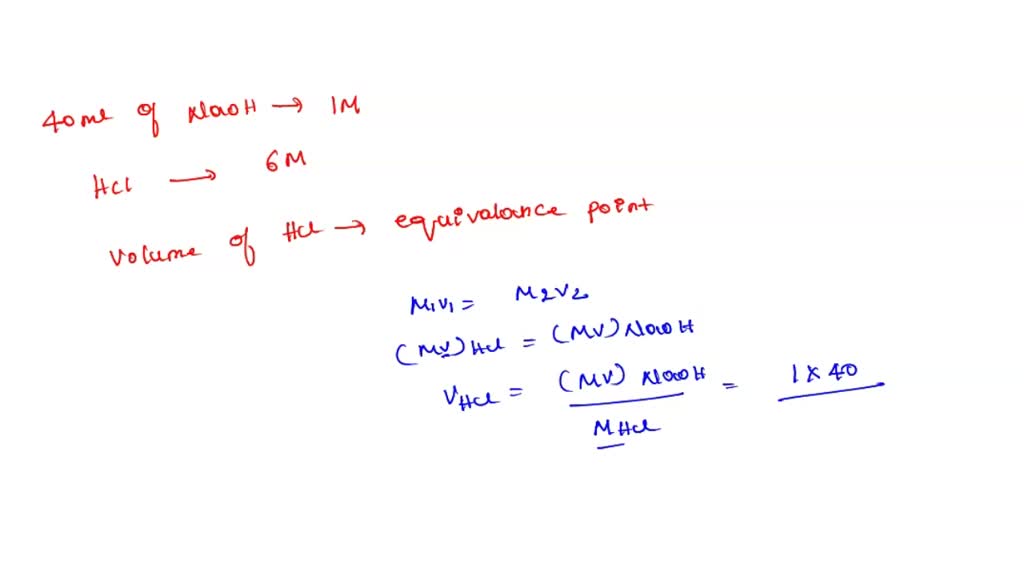 40ml of NaOH → 1M
HCl → 6M
Volume of HCl → equivalance point
M1V1 = M2V2
(MV)HCl = (MV)NaOH
VHCl = (MV) NaOH / MHCl = 1 x 40